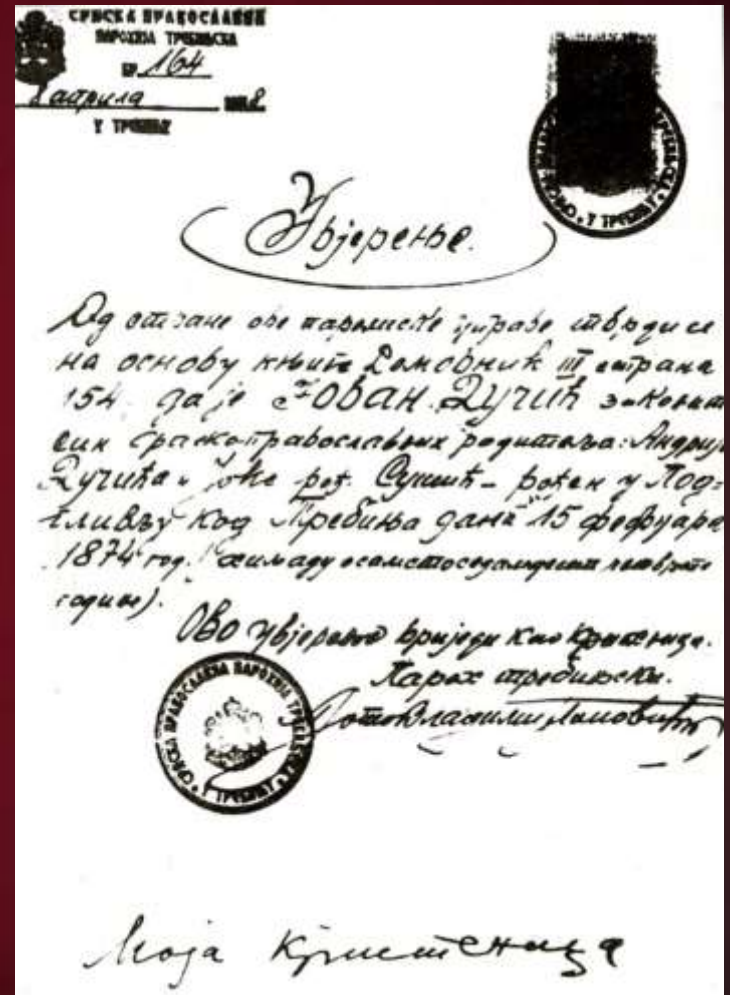 СРПСКА ПРАВОСЛАВНА
ПАРОХИЈА ТРЕБИЊСКА
БР. 164
8 априла 8
У ТРЕБИЊУ
У ТРЕБИЊУ
Увјерење.
Од стране ове парохиске управе тврди се
на основу књиге Домовник III страна
154 да је Јован Дучић законит
син српскоправославних родитеља: Андрије
Дучића и Јоке рођ. Сушић - рођен у Под=
гливљу код Требиња дана 15 фебруара
1874 год. (хиљаду осамстоседамдесет четврте
године).
Ово увјерење вриједи као крштеница.
Парох требињски.
СРПСКА ПРАВОСЛАВНА ПАРОХИЈА ТРЕБИЊСКА
У ТРЕБИЊУ
Моја Крштеница